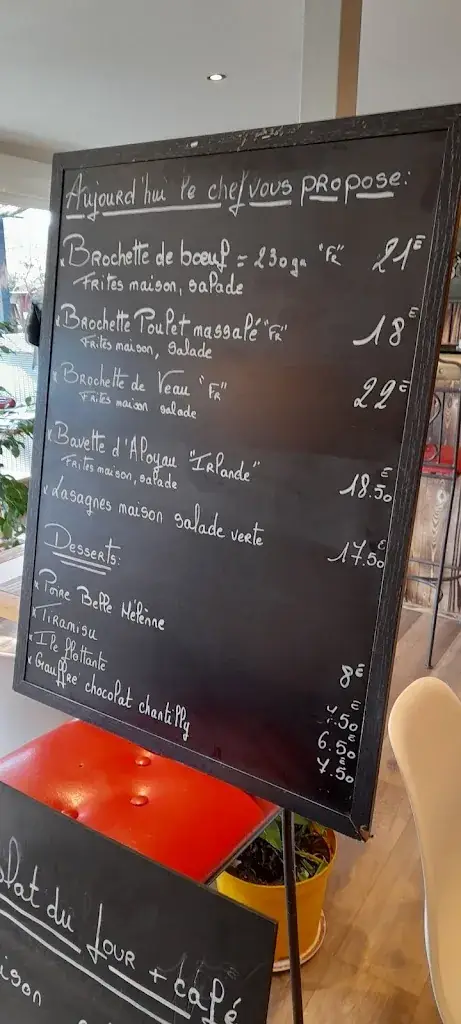 Aujourd'hui le chef vous propose:
* Brochette de bœuf = 230gr "FR" 21€
Frites maison, salade
* Brochette Poulet massalé "FR" 18€
Frites maison, salade
* Brochette de Veau "FR" 22€
Frites maison salade
* Bavette d'Aloyau "IRlande" 18.50€
Frites maison, salade
* Lasagnes maison salade verte 17.50€
Desserts:
* Poire Belle Hélènne 8€
* Tiramisu 7.50€
* Ile flottante 6.50€
* Gauffre chocolat chantilly 7.50
plat du Jour + café